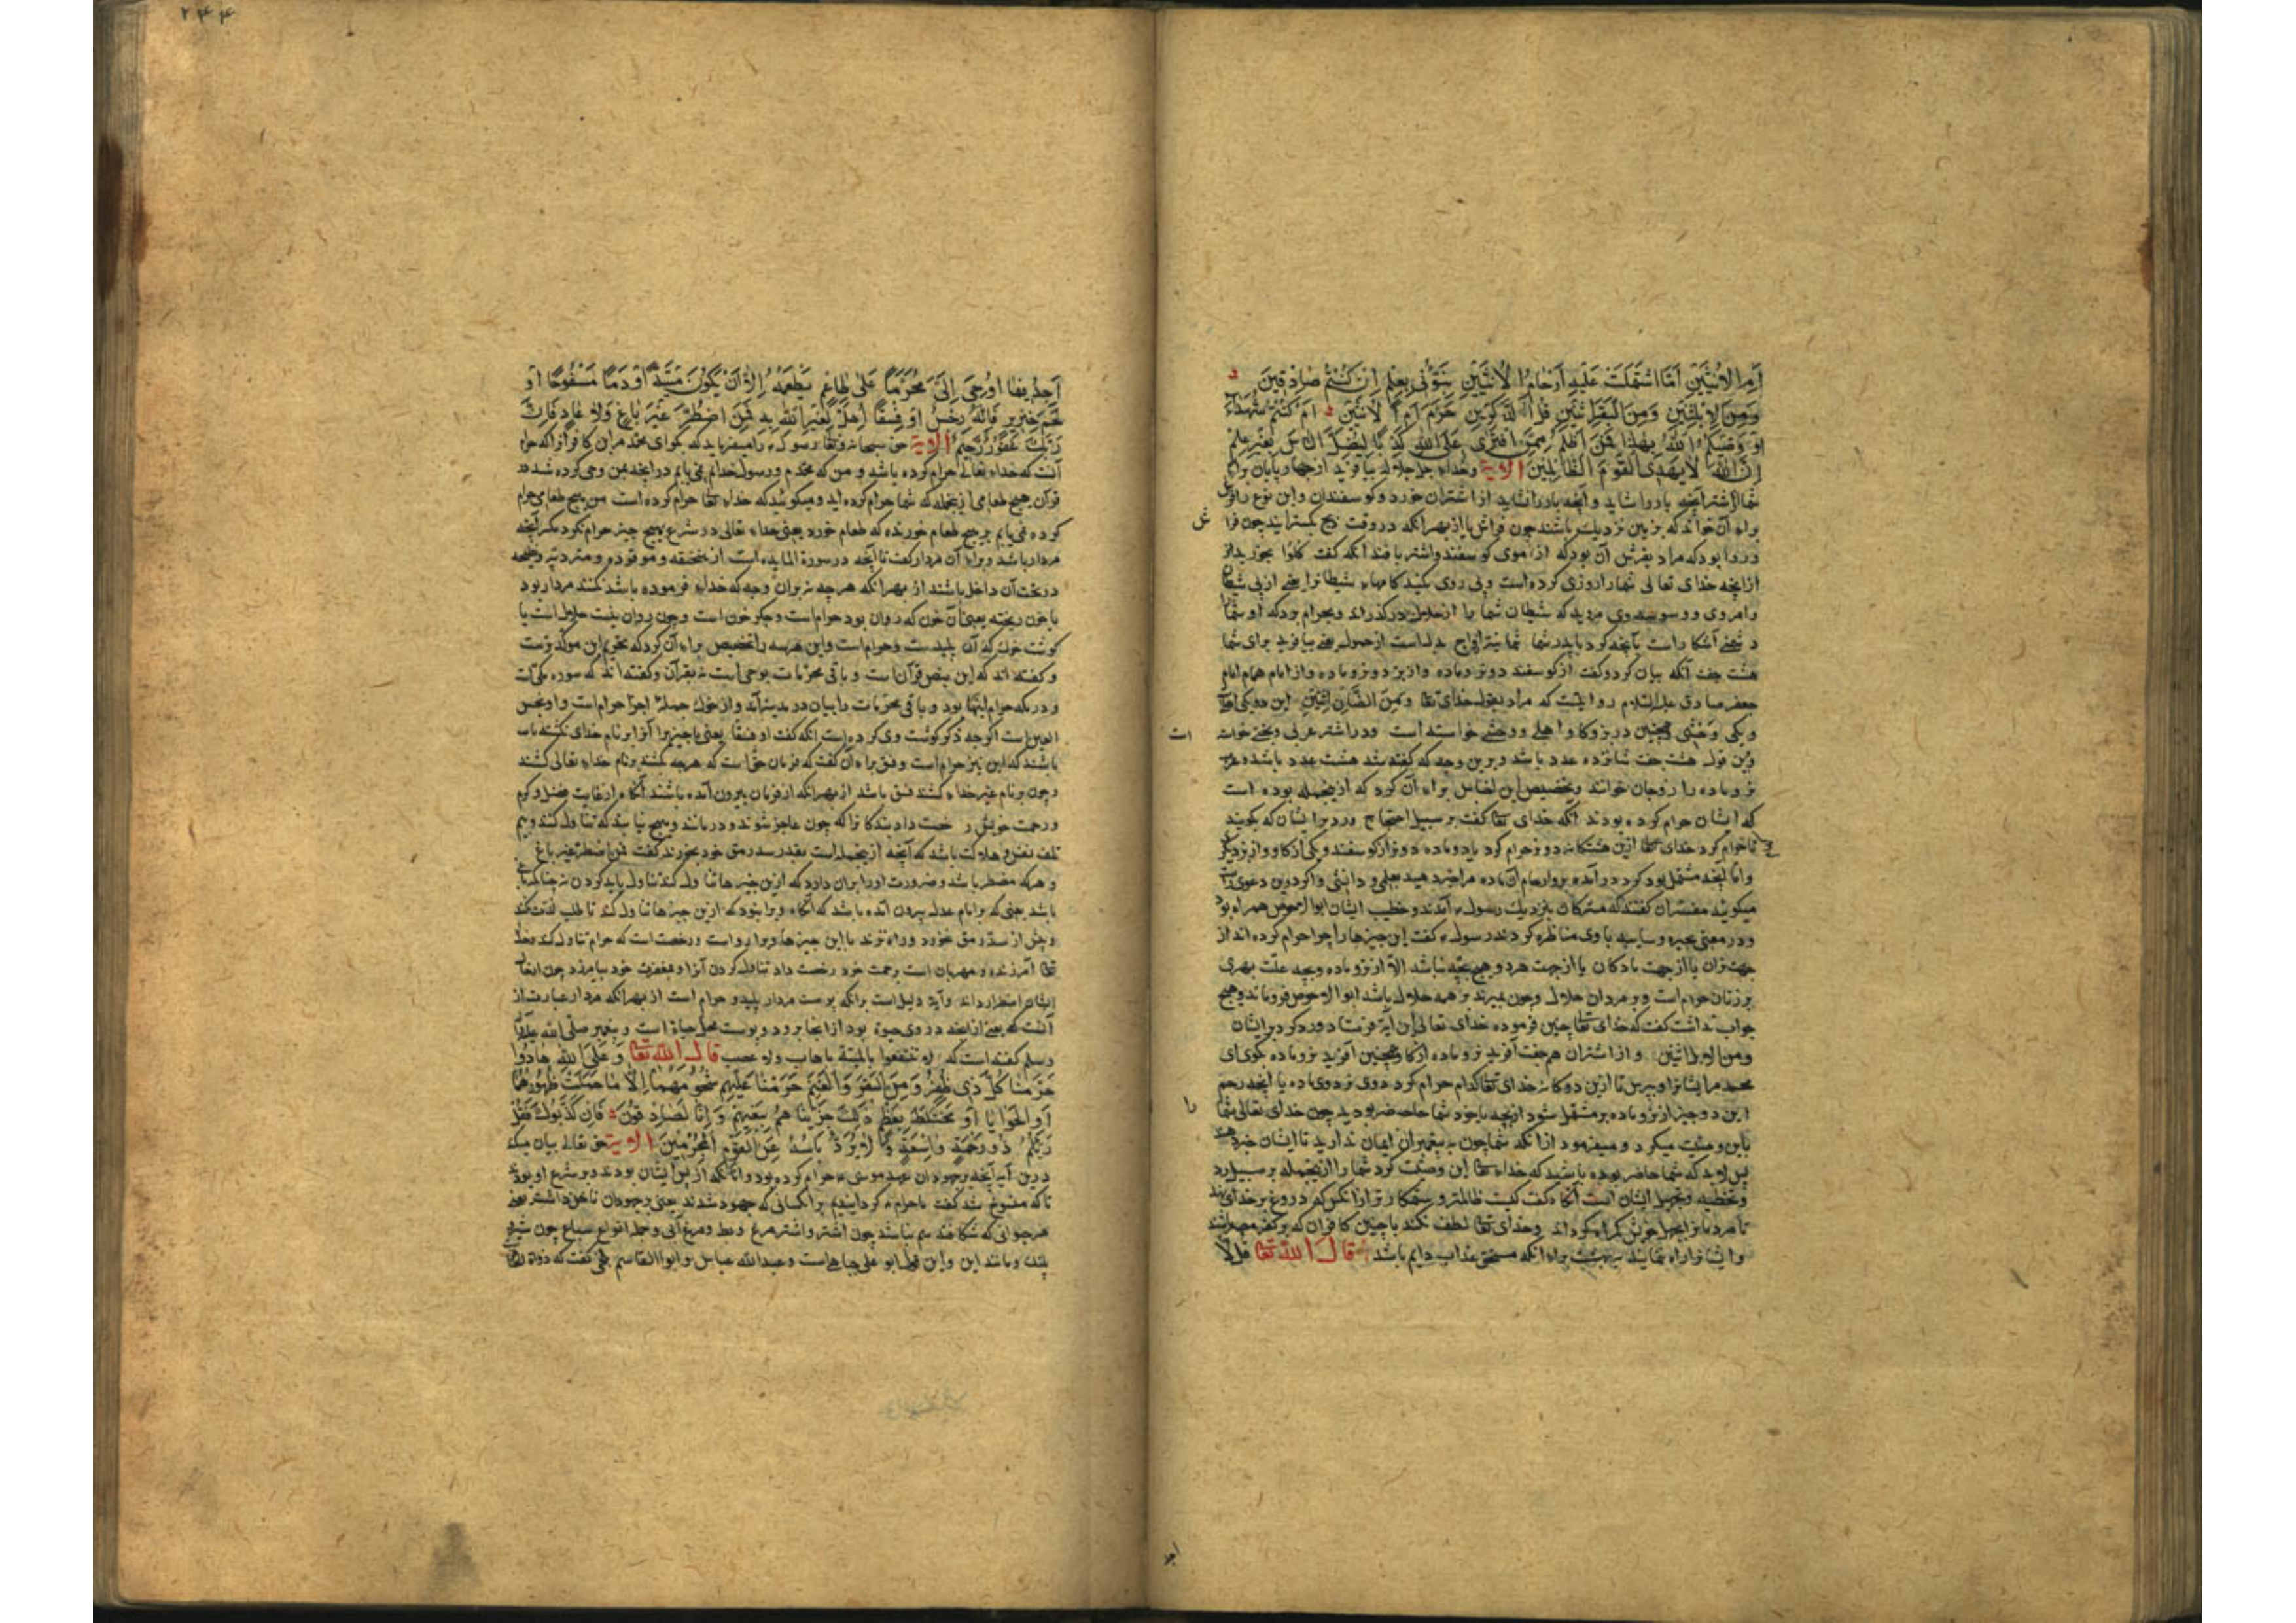 أَمِ الْأُنْثَيَيْنِ أَمَّا اشْتَمَلَتْ عَلَيْهِ أَرْحَامُ الْأُنْثَيَيْنِ نَبِّئُونِي بِعِلْمٍ إِنْ كُنْتُمْ صَادِقِينَ
وَمِنَ الْإِبِلِ اثْنَيْنِ وَمِنَ الْبَقَرِ اثْنَيْنِ قُلْ آلذَّكَرَيْنِ حَرَّمَ أَمِ الْأُنْثَيَيْنِ أَمْ كُنْتُمْ شُهَدَاءَ
إِذْ وَصَّاكُمُ اللَّهُ بِهَذَا فَمَنْ أَظْلَمُ مِمَّنِ افْتَرَى عَلَى اللَّهِ كَذِبًا لِيُضِلَّ النَّاسَ بِغَيْرِ عِلْمٍ
إِنَّ اللَّهَ لَا يَهْدِي الْقَوْمَ الظَّالِمِينَ الآیة وخدای جل جلاله بیافرید از چهارپایان برای
شما از شتر آنچه بار را شاید و آنچه بار را نشاید از اشتران خورد و کوسفندان و این نوع را فرش
برای آن خواند که بزمین نزدیک باشند چون فراش یا از بهر آنکه در وقت ذبح بکسترانند چون فرا ش
و روا بود که مراد بفرش آن بود که از موی کوسفند و اشتر بافند آنکه گفت کلوا بخورید از
ازانچه خدای تعالی شما را روزی کرده است و پی روی مکنید کامهاء شیطانرا یعنی از پی شیطان
را مروی و وسوسه وی مروید که شیطان شما را از حلال درگذراند و بحرام برد که او شما را
دشمنی آشکارا است بآنچه کرد با پدر شما ثمانیة ازواج بدلست از حمولة یعنی بیافرید برای شما
هشت جفت آنکه بیان کرد و گفت از کوسفند دو نر و ماده و از بز دو نر و ماده و از امام همام امام
جعفر صادق علیه السلام روایتست که مراد بقول خدای تعا ومن الضأن اثنین این دو یکی اهلی
و یکی وحشی همچنین در بز و کاو اهلی و وحشی خواسته است و در اشتر عربی و بختی خواسته است
و برین قول هشت جفت شانزده عدد باشد و برین وجه که گفته شد هشت عدد باشد و عرب
نر و ماده را زوجان خوانند و تخصیص این اجناس برای آن کرد که ازینجمله بوده است
که ایشان حرام کرده بودند آنکه خدای تعا گفت بر سبیل احتجاج و رد بر ایشان که بگویند
تا حرام کرد خدای تعا ازین هشتگانه دو نر حرام کرد یا دو ماده دو نر از کوسفند و یکی از کاو و از بز دیگر
و اما آنچه مشتمل بود کرد در آمده برو ارحام آن ماده مرا خبر دهید بعلمی و دانشی و اگر درین دعوی راست
میگوئید مفسران گفتند که مشرکان بنزدیک رسول ء آمدند و خطیب ایشان ابوالاحوص همراه بود
و در معنی بحیره و سایبه با وی مناظره کردند رسول ء گفت این چیزها را چرا حرام کرده‌اند از
جهت نران یا از جهت مادکان یا از جهت هر دو هیچ بچه نباشد الا از نر و ماده و بچه علت بهری
بر زنان حرام است و بر مردان حلال و چون بمیرند بر همه حلال باشد ابوالاحوص فروماند و هیچ
جواب نداشت گفت که خدای تعا چنین فرموده خدای تعالی این آیه فرستاد و رد کرد بر ایشان
ومن الابل اثنین و از اشتران هم جفت آفرید نر و ماده از کاو همچنین آفرید نر و ماده بگوی ای
محمد مر ایشانرا و بپرس تا ازین دوگانه خدای تعا کدام حرام کرد دو نر و دو ماده یا آنچه رحم
این دو چیز از نر و ماده بر مشتمل شود از بچه یا خود شما حاضر بودید چون خدای تعالی شما را
باین وصیت میکرد و میفرمود از آنکه شما چون به پیغمبران ایمان ندارید تا ایشان خبر دهند
پس لابد که شما حاضر بوده باشید که خداء تعا این وصیت کرد شما را ازینجمله بر سبیل رد
و تخطیه و تجهیل ایشان است آنکاه گفت کیست ظالمتر و ستمکارتر از آنکس که دروغ بر خدای بندد
تا مردمانرا بجهل خویش گمراه گرداند و خدای تعا لطف نکند با چنین کافران که بر کفر مصر باشند
و ایشانرا راه ننماید ببهشت برای آنکه مستحق عذاب دایم باشند قال الله تعا قل لا
۲۴۴
أَجِدُ فِيمَا أُوحِيَ إِلَيَّ مُحَرَّمًا عَلَى طَاعِمٍ يَطْعَمُهُ إِلَّا أَنْ يَكُونَ مَيْتَةً أَوْ دَمًا مَسْفُوحًا أَوْ
لَحْمَ خِنْزِيرٍ فَإِنَّهُ رِجْسٌ أَوْ فِسْقًا أُهِلَّ لِغَيْرِ اللَّهِ بِهِ فَمَنِ اضْطُرَّ غَيْرَ بَاغٍ وَلَا عَادٍ فَإِنَّ
رَبَّكَ غَفُورٌ رَحِيمٌ الآیة حق سبحانه و تعا رسول ء را میفرماید که بگو ای محمد مر این کافرانرا که حرام
آنست که خداء تعالی حرام کرده باشد و من که محمدم و رسول خدایم نمی یابم در آنچه بمن وحی کرده شد در
قرآن هیچ طعامی ازینجمله که شما حرام کرده‌اید و میگوئید که خداء تعا حرام کرده است من هیچ طعامی حرام
کرده نمی یابم بر هیچ طعام خورنده که طعام خورد یعنی خداء تعالی در شرع هیچ چیز حرام نکرد مگر آنچه
مردار باشد و برای آن مردار گفت تا آنچه در سورة المایده است از منخنقه و موقوذه و متردیه و نطیحه
در تحت آن داخل باشند از بهر آنکه هرچه نه بران وجه که خداء فرموده باشد کشند مردار بود
یا خون ریخته یعنی آن خون که روان بود حرام است و جگر خون است و چون روان نیست حلال است یا
گوشت خوک که آن پلیدست و حرام است و این هر سه را تخصیص برای آن کرد که تحریم این موکدترست
و گفته‌اند که این بنص قرآن است و باقی محرمات بوحی است نه بقرآن و گفته‌اند که سوره مکی است
و در مکه حرام اینها بود و باقی محرمات را بیان در مدینه آمد و از خوک جمله اجزا حرام است و او نجس
العین است اگرچه ذکر گوشت وی کرده است آنکه گفت او فسقا یعنی یا چیزیرا آنرا بر نام خدای نکشته باشند
باشند که این نیز حرام است و فسق برای آن گفت که فرمان حق است که هرچه بکشند بر نام خداء تعالی کشند
و چون بر نام غیر خداء کشند فسق باشد از بهر آنکه از فرمان بیرون آمده باشند آنکاه از غایت فضل و کرم
و رحمت خویش رخصت داد بندکانرا که چون عاجز شوند و درمانند و هیچ نیابند که تناول کنند و بیم
تلف نفس و هلاکت باشد که آنچه ازینجمله است بقدر سد رمق خود بخورند گفت فمن اضطر غیر باغ
و هرکه مضطر باشد و ضرورت او را بران دارد که ازین چیزها تناول کند تناول باید کردن نه چنانکه باغی
باشد یعنی که بر امام عدل بیرون آمده باشد که آنکاه ویرا نبود که ازین چیزها تناول کند تا طلب لذت کند
و بیش از سد رمق خورد و راه نزند با این چیزها ویرا رواست و رخصت است که حرام تناول کند و خدا
تعا آمرزنده و مهربان است برحمت خود رخصت داد تناول کردن آنرا و بمغفرت خود بیامرزد چون
ایشان اضطرار داند و آیة دلیل است بر آنکه پوست مردار پلید و حرام است از بهر آنکه مردار عبارت از
آنست که یعنی از آنچه در وی حیوة بود از آنجا برود و پوست محل حیاة است و پیغمبر صلی الله علیه و آله
وسلم گفته است که لا تنتفعوا بالمیتة باهاب ولا عصب قال الله تعا وَعَلَى الَّذِينَ هَادُوا
حَرَّمْنَا كُلَّ ذِي ظُفُرٍ وَمِنَ الْبَقَرِ وَالْغَنَمِ حَرَّمْنَا عَلَيْهِمْ شُحُومَهُمَا إِلَّا مَا حَمَلَتْ ظُهُورُهُمَا
أَوِ الْحَوَايَا أَوْ مَا اخْتَلَطَ بِعَظْمٍ ذَلِكَ جَزَيْنَاهُمْ بِبَغْيِهِمْ وَإِنَّا لَصَادِقُونَ فَإِنْ كَذَّبُوكَ فَقُلْ
رَبُّكُمْ ذُو رَحْمَةٍ وَاسِعَةٍ وَلَا يُرَدُّ بَأْسُهُ عَنِ الْقَوْمِ الْمُجْرِمِينَ الآیة حق تعالی بیان میکند
درین آیه آنچه بر جهودان بعهد موسی ء حرام کرده بود و آنانکه از پس ایشان بودند در شرع او بود
تا که منسوخ شد گفت ما حرام گردانیدیم بر آنکسانی که جهود شدند یعنی بر جهودان ناخن داشتر یعنی
هر حیوانی که شکافته سم نباشد چون اشتر و اشترمرغ و بط و مرغ آبی و جمله انواع سباع چون شیر و
پلنک و مانند این و این قول ابو علی جبائی است و عبدالله عباس و ابوالقاسم بلخی گفت که ذوات